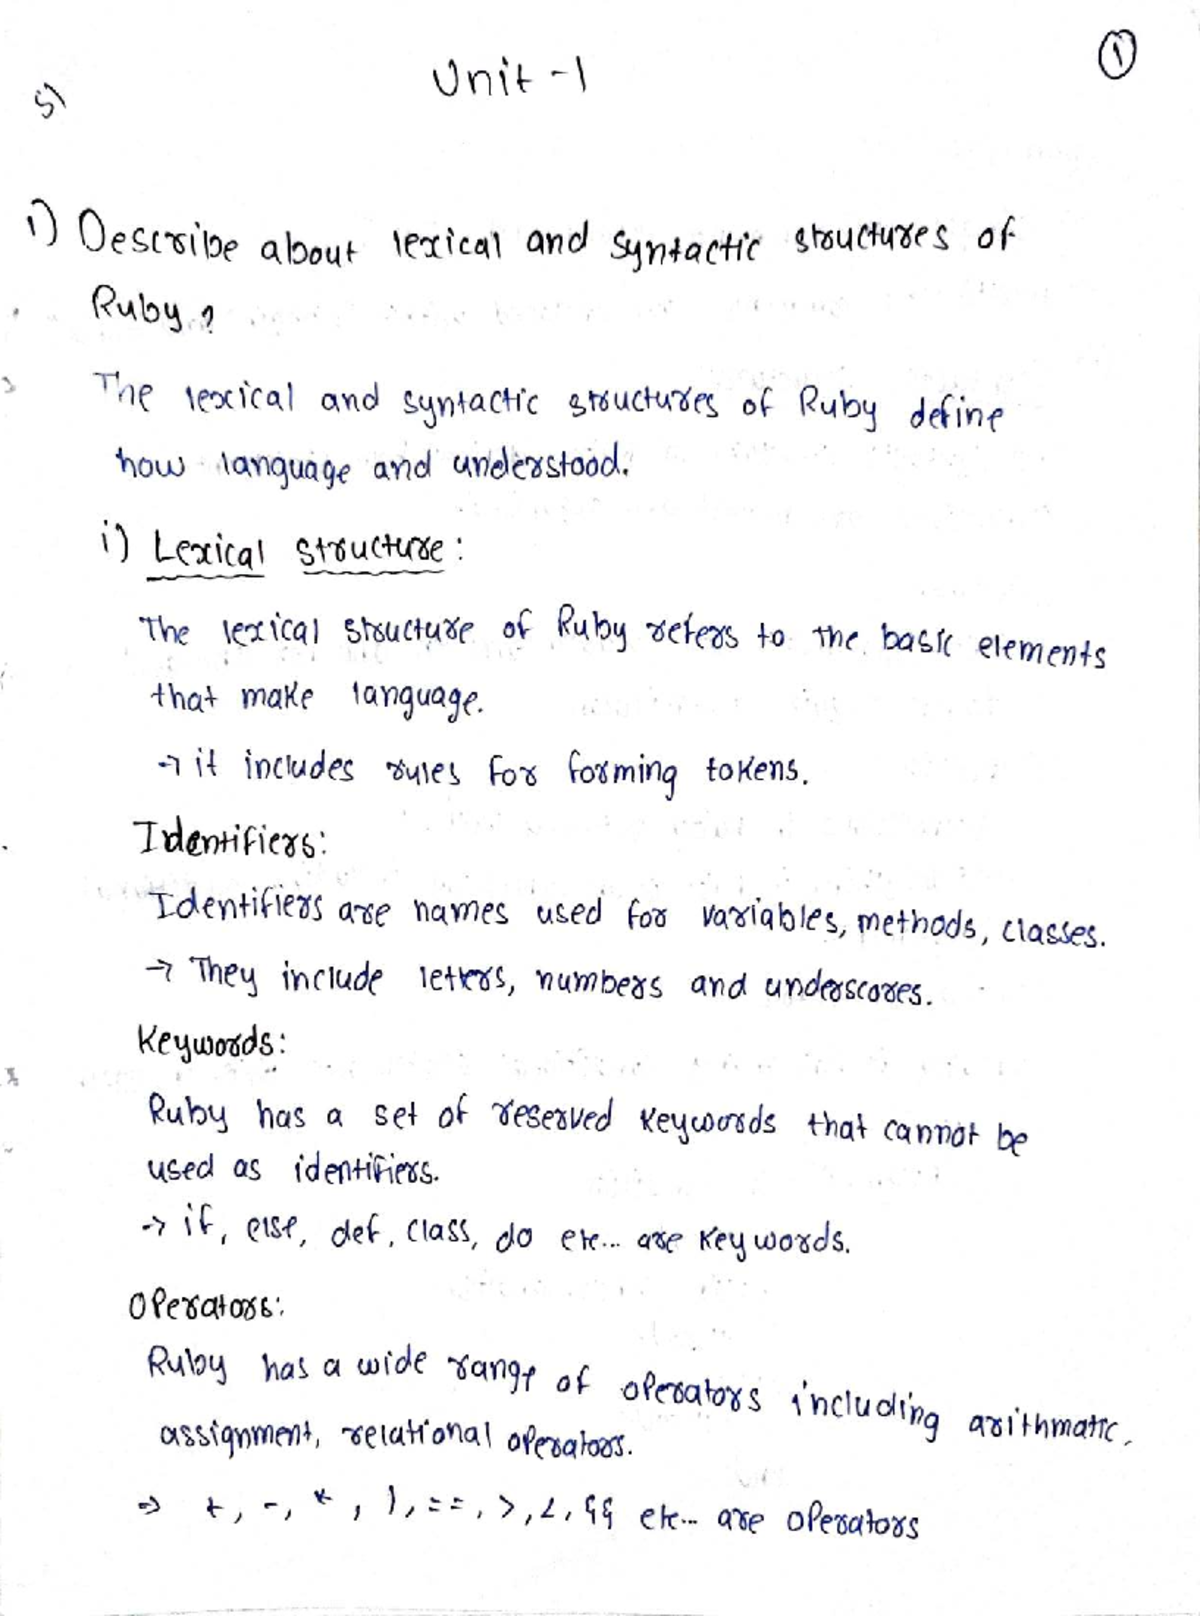 ①
Unit -1
5)
1) Describe about lexical and syntactic structures of
Ruby ?
The lexical and syntactic structures of Ruby define
how language and understood.
i) Lexical structure :
The lexical structure of Ruby refers to the basic elements
that make language.
→ it includes rules for forming tokens.
Identifiers:
Identifiers are names used for variables, methods, classes.
→ They include letters, numbers and underscores.
Keywords:
Ruby has a set of reserved keywords that cannot be
used as identifiers.
→ if, else, def, class, do etc... are keywords.
Operators:
Ruby has a wide range of operators including arithmatic,
assignment, relational operators.
⇒ +, -, *, ), ==, >, <, && etc... are operators